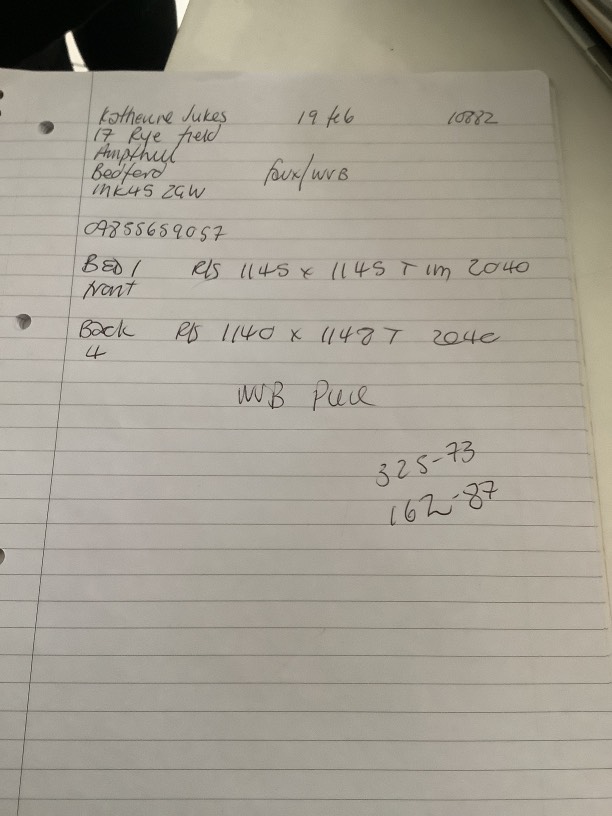 Katherine Jukes 19 feb 10882
17 Rye field
Ampthill
Bedford faux/WVB
MK45 2GW
07855659057
BED 1 R/S 1145 x 1145 T 1m 2040
front
Back R/S 1140 x 1148 T 2040
4
WVB Pure
325-73
162-87